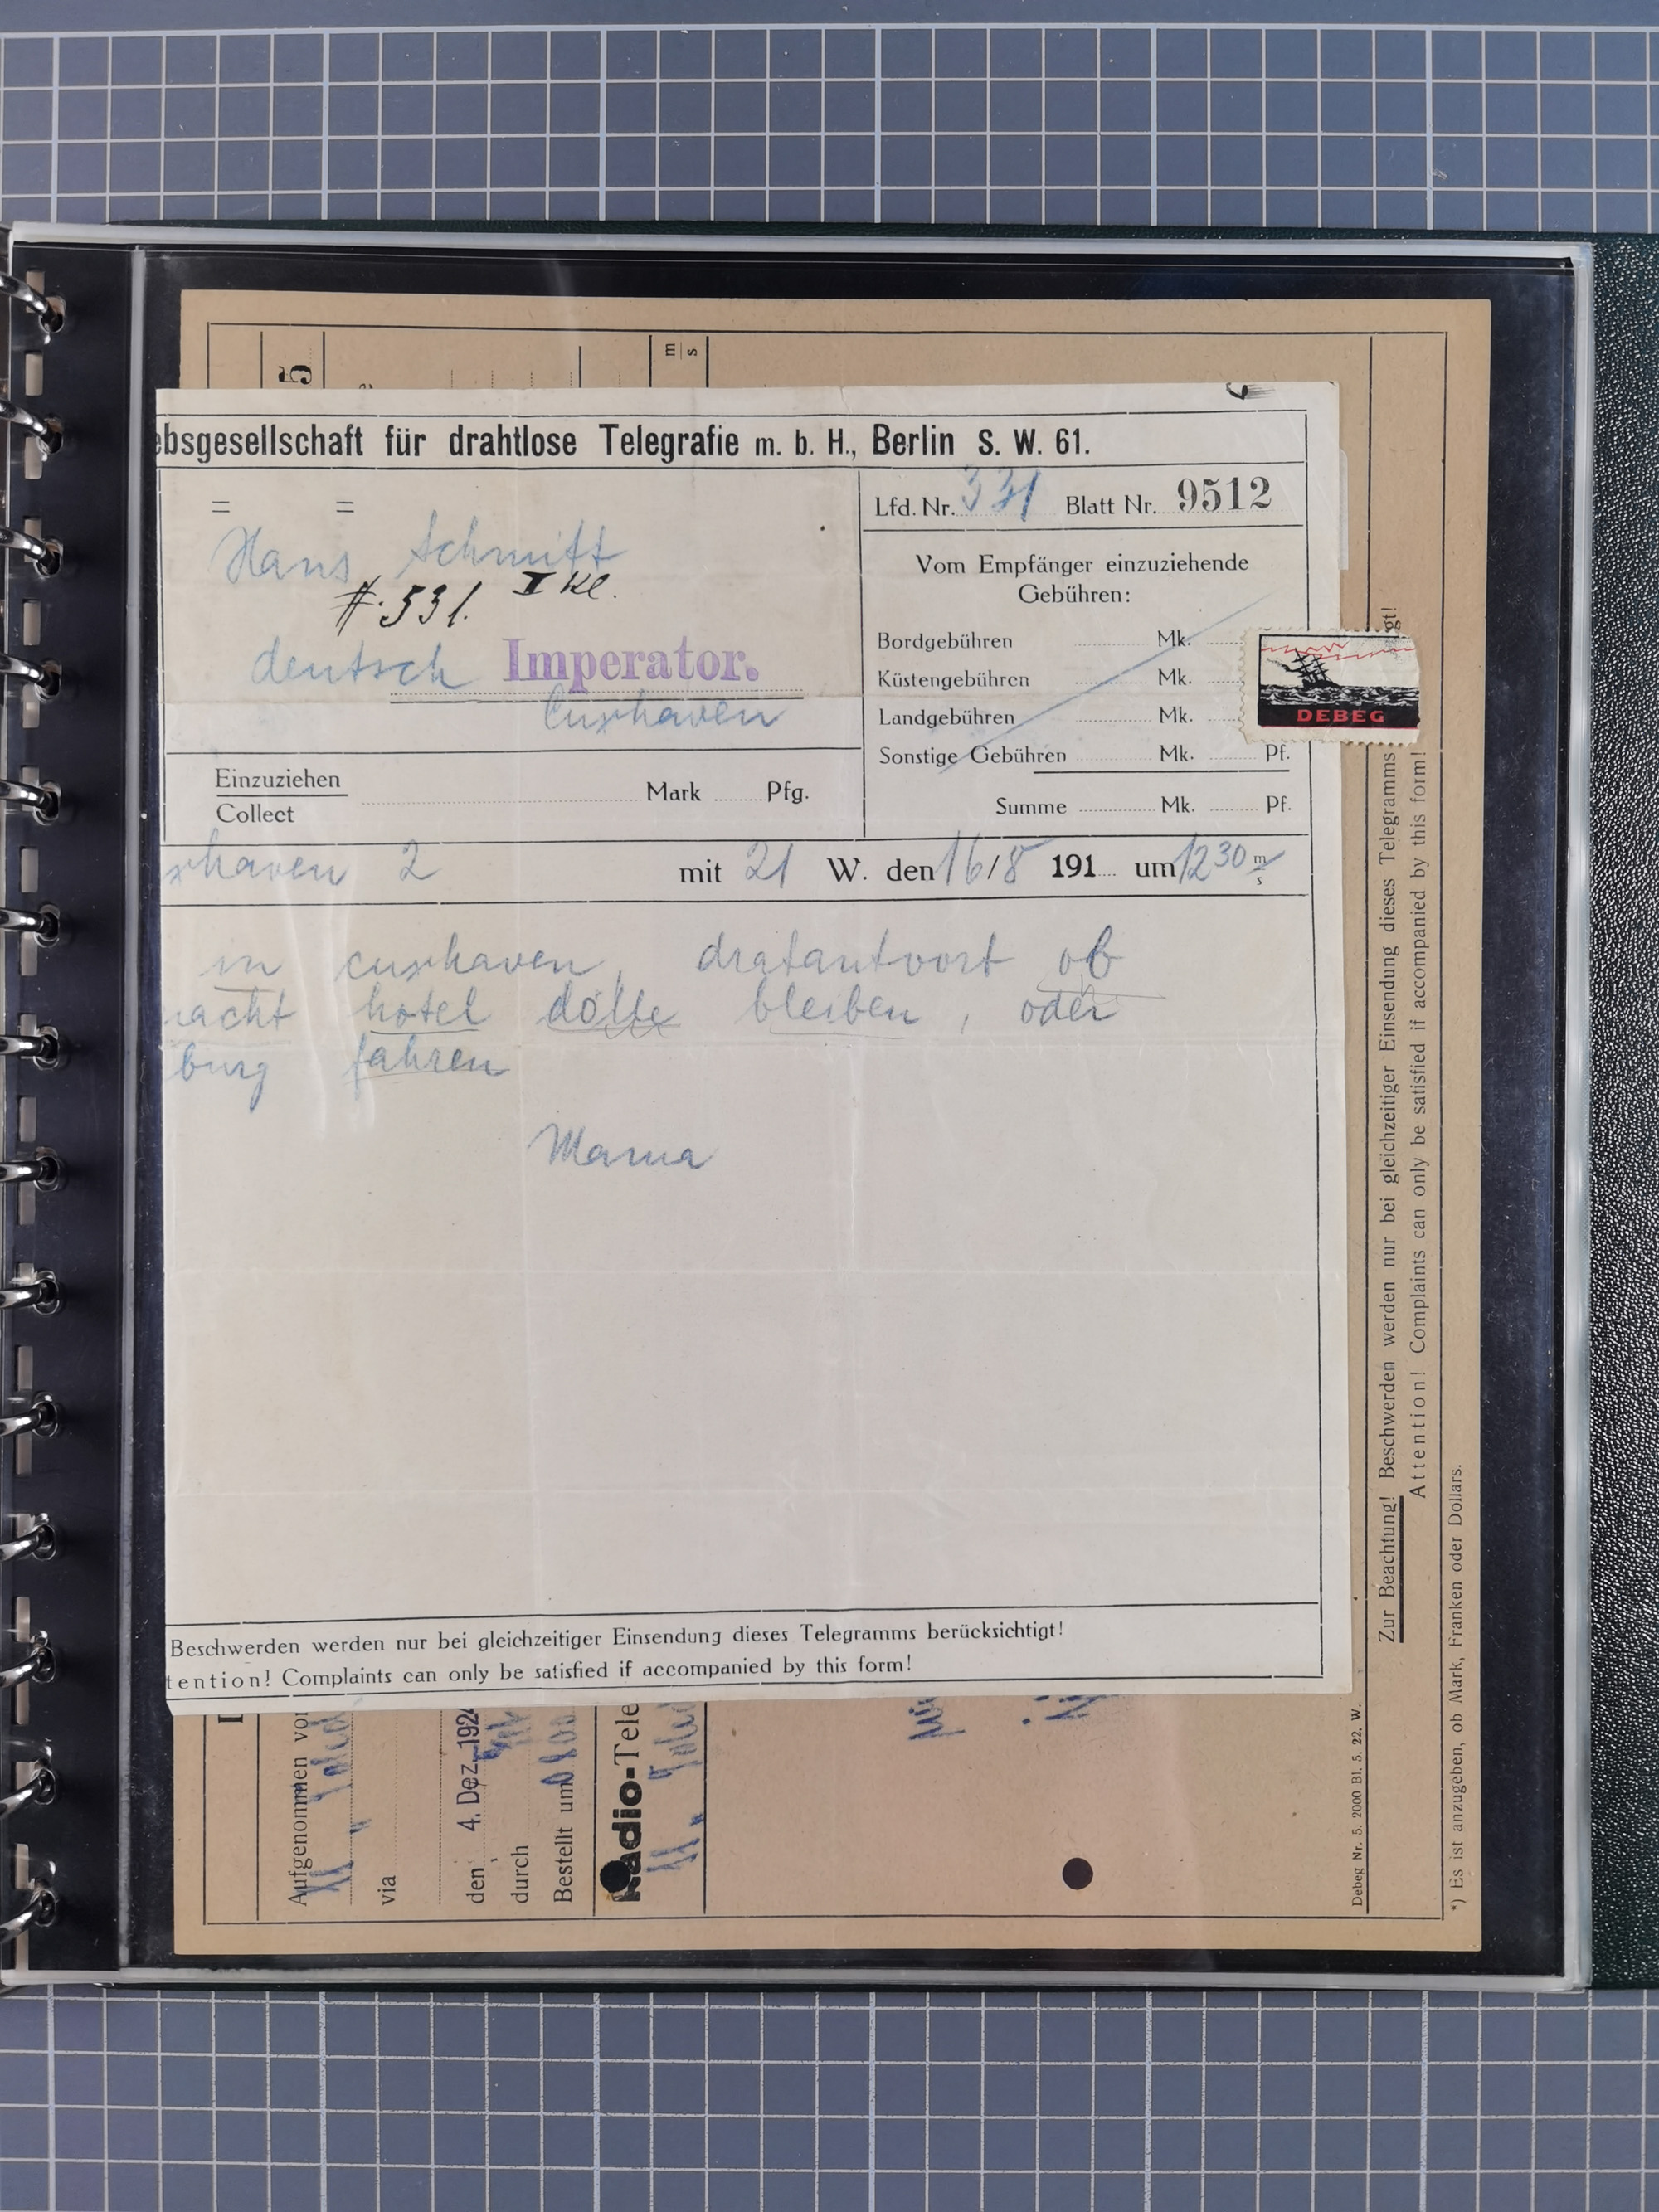 5
m
s
ebsgesellschaft für drahtlose Telegrafie m. b. H., Berlin S. W. 61.
Lfd. Nr. 331 Blatt Nr. 9512
= =
Hans Schmitt
#. 531. I Kl.
deutsch Imperator.
Cuxhaven
Vom Empfänger einzuziehende
Gebühren:
Bordgebühren Mk.
Küstengebühren Mk.
Landgebühren Mk.
Sonstige Gebühren Mk. Pf.
Summe Mk. Pf.
DEBEG
Einzuziehen
Collect
Mark Pfg.
xhaven 2 mit 21 W. den 16/8 191 um 12 30 m/s
in cuxhaven, dratantvort ob
nacht hotel dölle bleiben, oder
burg fahren
Mama
Beschwerden werden nur bei gleichzeitiger Einsendung dieses Telegramms berücksichtigt!
tention! Complaints can only be satisfied if accompanied by this form!
Aufgenommen von
via
den 4. Dez. 1924
durch
Bestellt um
Radio-Tele
Debeg Nr. 5. 2000 Bl. 5. 22. W.
Zur Beachtung! Beschwerden werden nur bei gleichzeitiger Einsendung dieses Telegramms gt!
Attention! Complaints can only be satisfied if accompanied by this form!
*) Es ist anzugeben, ob Mark, Franken oder Dollars.